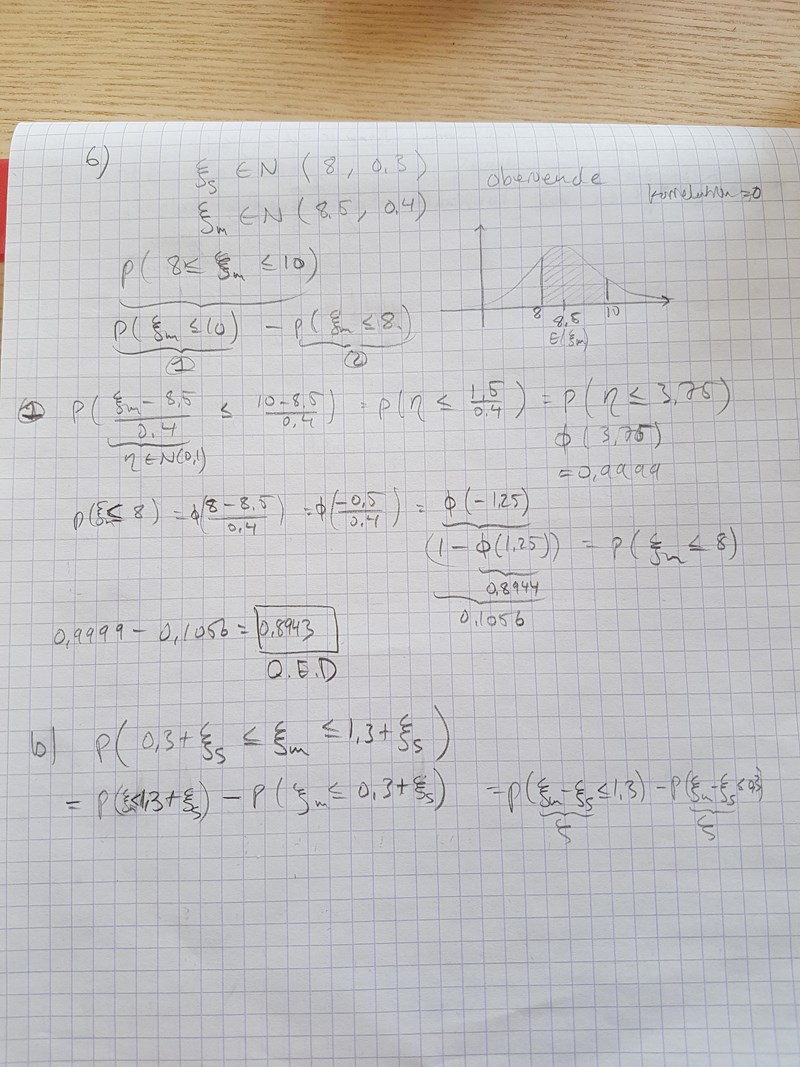 6) ξs ∈ N (8, 0.3) oberoende Korrelation = 0
ξm ∈ N (8.5, 0.4)
P( 8 ≤ ξm ≤ 10)
P(ξm ≤ 10) − P(ξm ≤ 8.)
① ②
8 8,5 10
E(ξm)
① P( (ξm − 8,5)/0.4 ≤ (10−8,5)/0.4 ) = P(η ≤ 1,5/0.4) = P(η ≤ 3,75)
η ∈ N(0,1) Φ(3,75)
= 0,9999
P(ξm ≤ 8) = Φ((8−8.5)/0.4) = Φ(−0,5/0.4) = Φ(−1,25)
(1 − Φ(1,25)) = P(ξm ≤ 8)
0,8944
0,1056
0,9999 − 0,1056 = 0,8943
Q.E.D
b) P( 0,3+ξs ≤ ξm ≤ 1,3+ξs )
= P(ξ≤1,3+ξs) − P(ξm ≤ 0,3+ξs) = P(ξm−ξs ≤ 1,3) − P(ξm−ξs ≤ 0,3)
ζ ζ